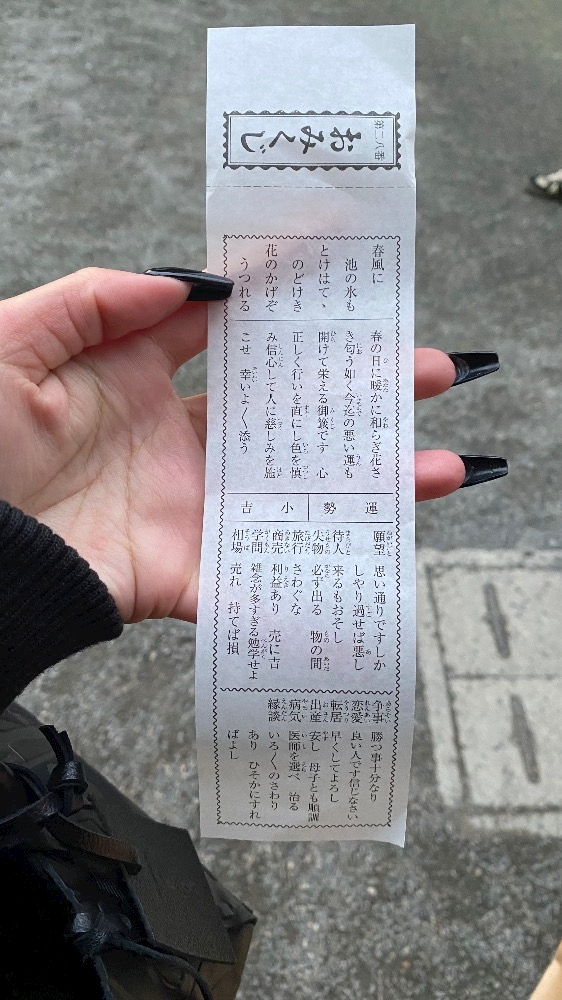 第二八番
おみくじ
春風に
池の氷も
とけはてゝ
のどけき
花のかげぞ
うつれる
春の日に暖かに和らぎ花さ
き匂う如く今迄の悪い運も
開けて栄える御籤です 心
正しく行いを直にし色を慎
み信心して人に慈しみを施
こせ 幸いよく添う
運勢 小吉
願望 思い通りですしか
しやり過せば悪し
待人 来るもおそし
失物 必ず出る 物の間
旅行 さわぐな
商売 利益あり 売に吉
学問 雑念が多すぎる勉学せよ
相場 売れ 持てば損
争事 勝つ事十分なり
恋愛 良い人です信じなさい
転居 早くしてよろし
出産 安し 母子とも順調
病気 医師を選べ 治る
縁談 いろ〱のさわり
あり ひそかにすれ
ばよし